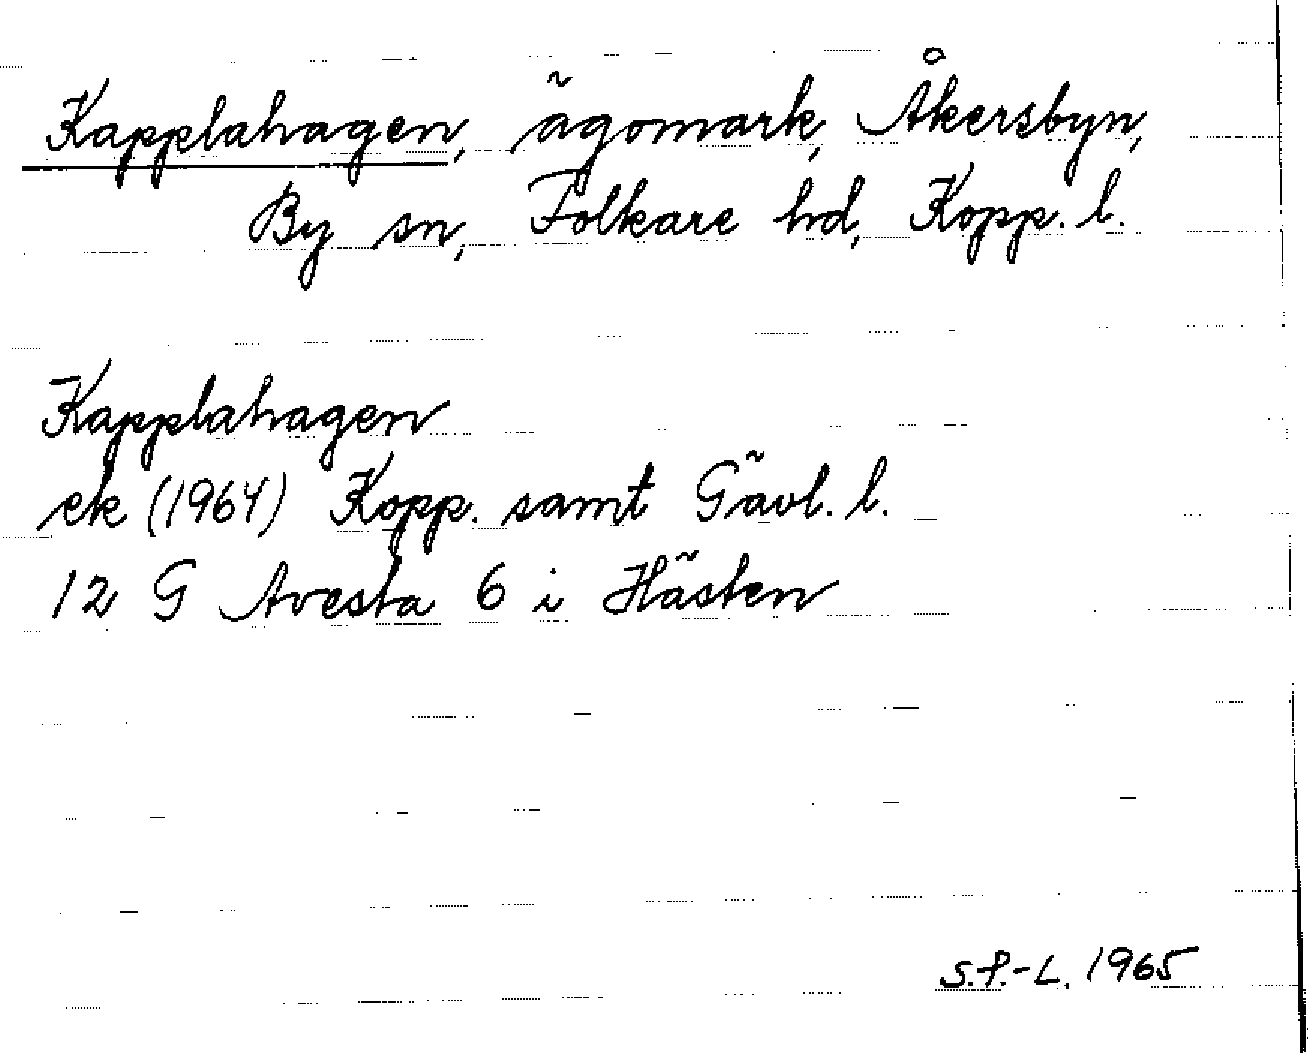 Kapplahagen, ägomark, Åkersbyn,
By sn, Folkare hd, Kopp. l.
Kapplahagen
ek (1964) Kopp. samt Gävl. l.
12 G Avesta 6 i Hästen
S.P.-L. 1965